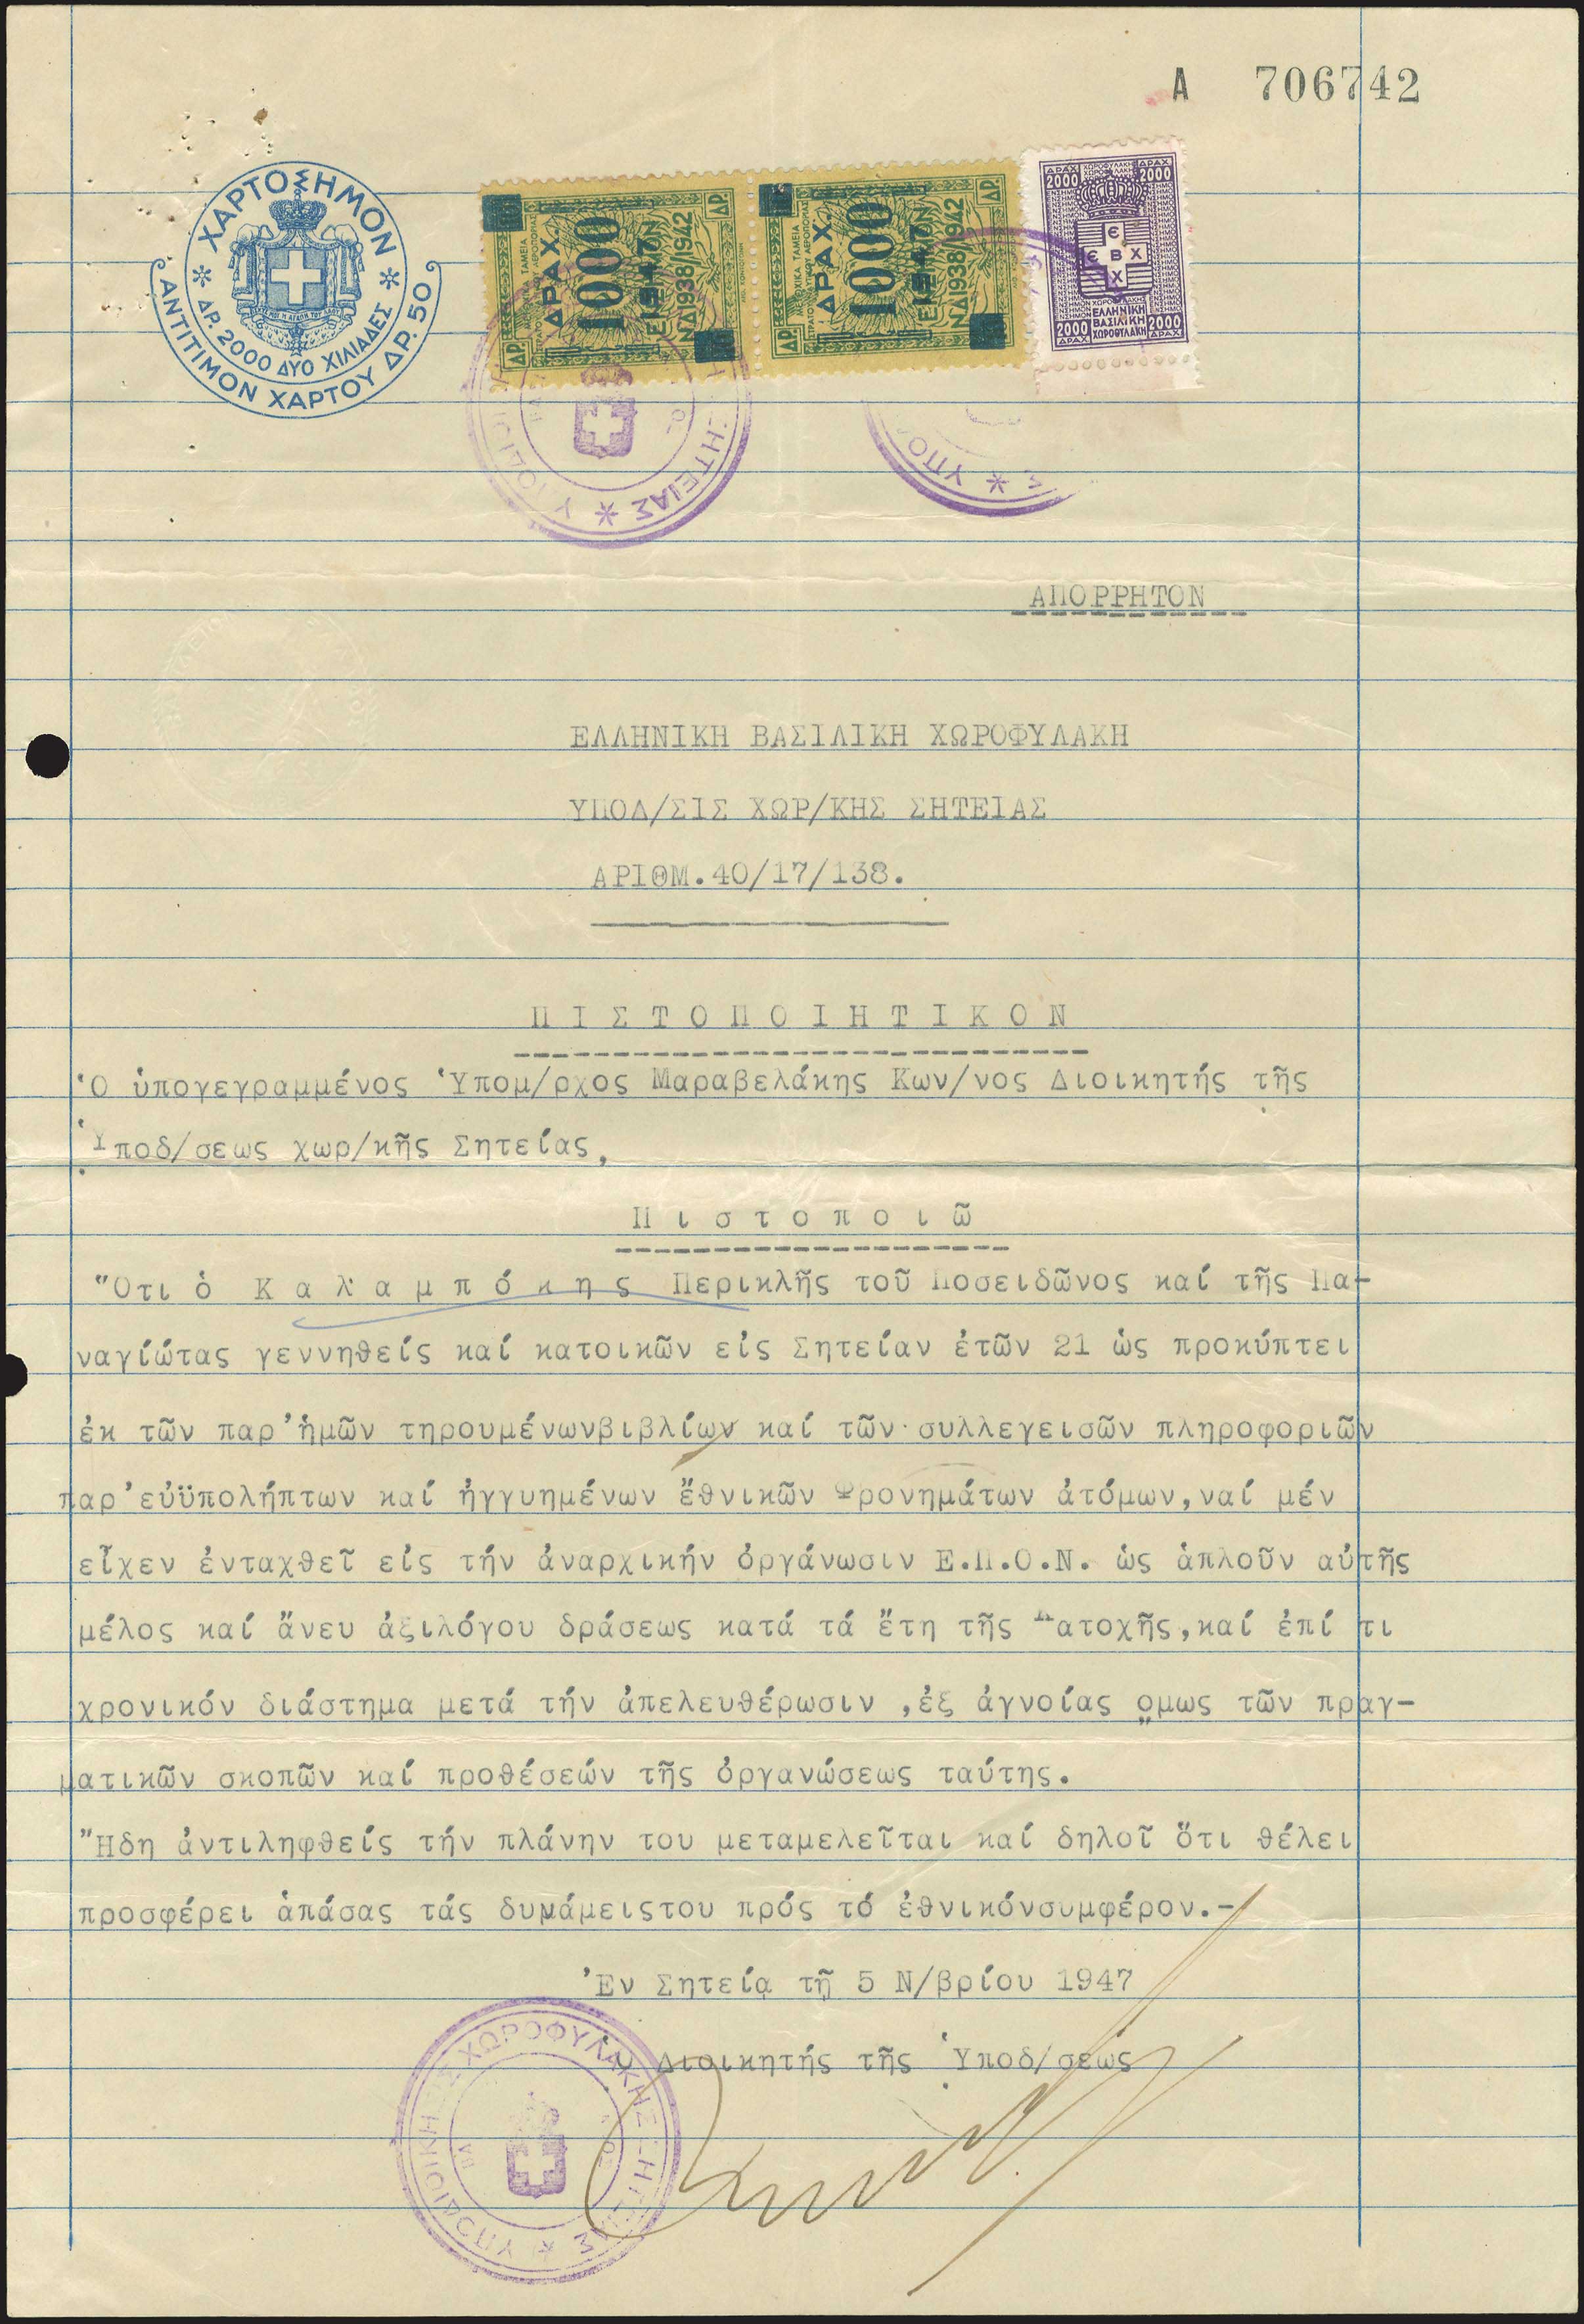 Α 706742
ΧΑΡΤΟΣΗΜΟΝ
ΔΡ. 2000 ΔΥΟ ΧΙΛΙΑΔΕΣ
ΑΝΤΙΤΙΜΟΝ ΧΑΡΤΟΥ ΔΡ. 50
ΔΡΑΧ. 1000
ΝΔ 1938/1942
ΔΡ.
ΔΡΑΧ. 1000
ΝΔ 1938/1942
ΔΡ.
ΔΡΑΧ ΧΩΡΟΦΥΛΑΚΗ ΔΡΑΧ
2000 2000
Ε
Ε Β Χ
Χ
ΕΛΛΗΝΙΚΗ
2000 ΒΑΣΙΛΙΚΗ 2000
ΔΡΑΧ ΧΩΡΟΦΥΛΑΚΗ ΔΡΑΧ
ΑΠΟΡΡΗΤΟΝ
ΕΛΛΗΝΙΚΗ ΒΑΣΙΛΙΚΗ ΧΩΡΟΦΥΛΑΚΗ
ΥΠΟΔ/ΣΙΣ ΧΩΡ/ΚΗΣ ΣΗΤΕΙΑΣ
ΑΡΙΘΜ.40/17/138.
Π Ι Σ Τ Ο Π Ο Ι Η Τ Ι Κ Ο Ν
Ὁ ὑπογεγραμμένος Ὑπομ/ρχος Μαραβελάκης Κων/νος Διοικητής τῆς
Ὑποδ/σεως χωρ/κῆς Σητείας,
Π ι σ τ ο π ο ι ῶ
Ὅτι ὁ Κ α λ α μ π ό κ η ς Περικλῆς τοῦ Ποσειδῶνος καί τῆς Πα-
ναγίώτας γεννηθείς καί κατοικῶν εἰς Σητείαν ἐτῶν 21 ὡς προκύπτει
ἐκ τῶν παρ'ἡμῶν τηρουμένωνβιβλίων καί τῶν συλλεγεισῶν πληροφοριῶν
παρ'εὐϋπολήπτων καί ἠγγυημένων ἔθνικῶν Φρονημάτων ἀτόμων,ναί μέν
εἶχεν ἐνταχθεῖ εἰς τήν ἀναρχικήν ὀργάνωσιν Ε.Π.Ο.Ν. ὡς ἁπλοῦν αὐτῆς
μέλος καί ἄνευ ἀξιλόγου δράσεως κατά τά ἔτη τῆς Κατοχῆς,καί ἐπί τι
χρονικόν διάστημα μετά τήν ἀπελευθέρωσιν ,ἐξ ἀγνοίας ομως τῶν πραγ-
ματικῶν σκοπῶν καί προθέσεών τῆς ὀργανώσεως ταύτης.
Ἤδη ἀντιληφθείς τήν πλάνην του μεταμελεῖται καί δηλοῖ ὅτι θέλει
προσφέρει ἁπάσας τάς δυνάμειςτου πρός τό ἐθνικόνσυμφέρον.-
Ἐν Σητείᾳ τῇ 5 Ν/βρίου 1947
Ὁ Διοικητής τῆς Ὑποδ/σεως